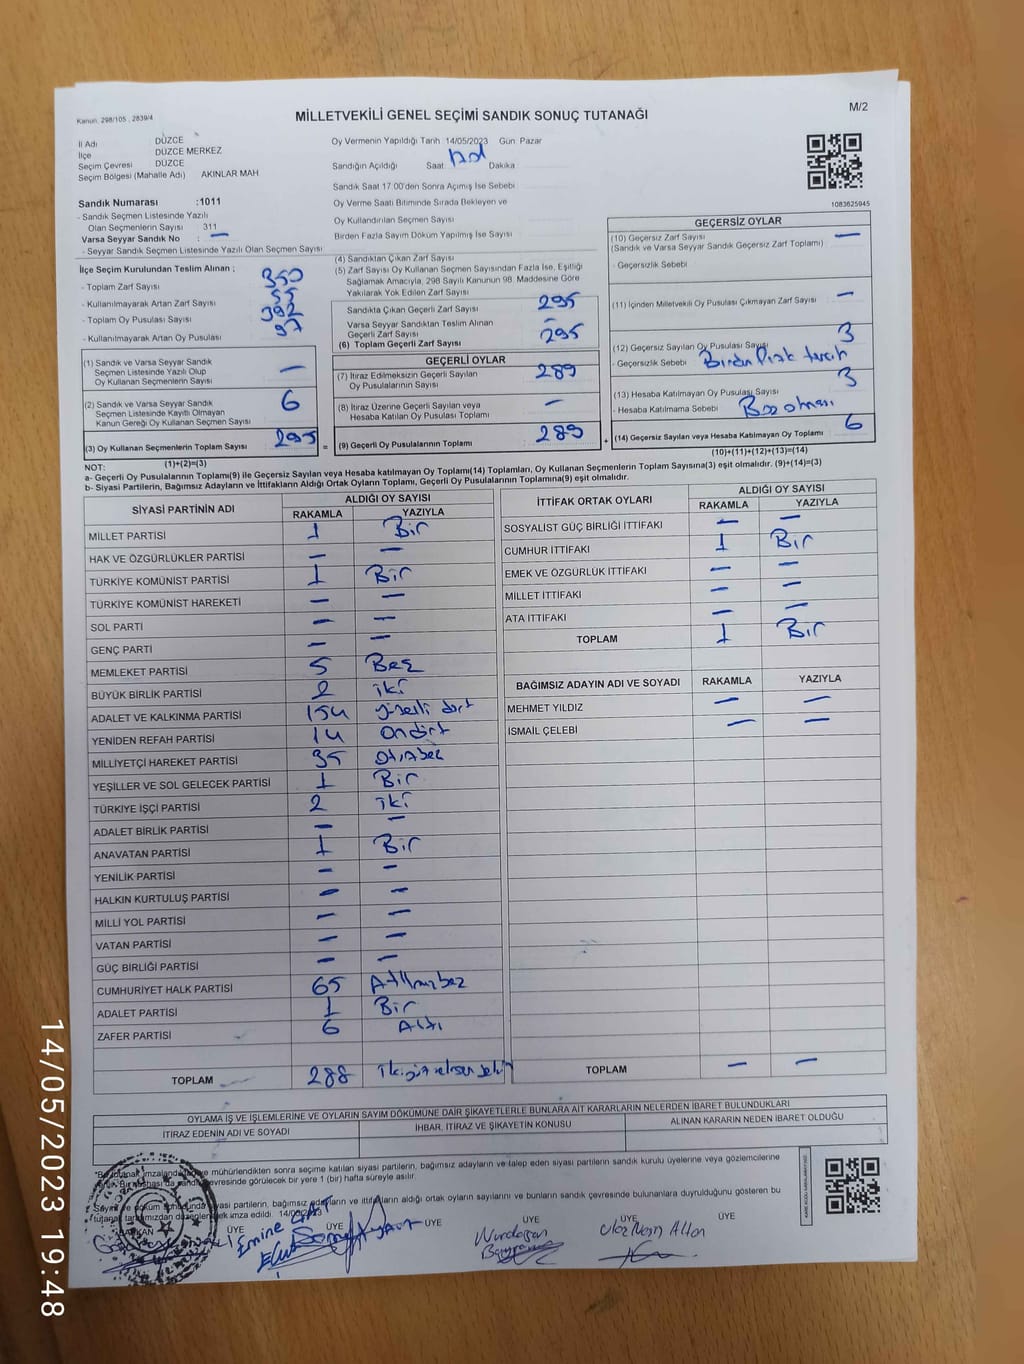 Kanun: 298/105 , 2839/4
MİLLETVEKİLİ GENEL SEÇİMİ SANDIK SONUÇ TUTANAĞI
M/2
İl Adı DÜZCE
İlçe DÜZCE MERKEZ
Seçim Çevresi DÜZCE
Seçim Bölgesi (Mahalle Adı) AKINLAR MAH
Oy Vermenin Yapıldığı Tarih 14/05/2023 Gün: Pazar
Sandığın Açıldığı Saat Dakika
Sandık Saat 17:00'den Sonra Açımış İse Sebebi
Oy Verme Saati Bitiminde Sırada Bekleyen ve
Oy Kullandırılan Seçmen Sayısı
Birden Fazla Sayım Döküm Yapılmış İse Sayısı
1083625945
Sandık Numarası :1011
- Sandık Seçmen Listesinde Yazılı
Olan Seçmenlerin Sayısı 311
Varsa Seyyar Sandık No : —
- Seyyar Sandık Seçmen Listesinde Yazılı Olan Seçmen Sayısı
İlçe Seçim Kurulundan Teslim Alınan ;
- Toplam Zarf Sayısı 350
- Kullanılmayarak Artan Zarf Sayısı 55
- Toplam Oy Pusulası Sayısı 392
- Kullanılmayarak Artan Oy Pusulası 97
(1) Sandık ve Varsa Seyyar Sandık
Seçmen Listesinde Yazılı Olup
Oy Kullanan Seçmenlerin Sayısı —
(2) Sandık ve Varsa Seyyar Sandık
Seçmen Listesinde Kayıtlı Olmayan
Kanun Gereği Oy Kullanan Seçmen Sayısı 6
(3) Oy Kullanan Seçmenlerin Toplam Sayısı 295
(1)+(2)=(3)
(4) Sandıktan Çıkan Zarf Sayısı
(5) Zarf Sayısı Oy Kullanan Seçmen Sayısından Fazla İse, Eşitliği
Sağlamak Amacıyla, 298 Sayılı Kanunun 98. Maddesine Göre
Yakılarak Yok Edilen Zarf Sayısı
Sandıkta Çıkan Geçerli Zarf Sayısı 295
Varsa Seyyar Sandıktan Teslim Alınan
Geçerli Zarf Sayısı —
(6) Toplam Geçerli Zarf Sayısı 295
GEÇERLİ OYLAR
(7) İtiraz Edilmeksizin Geçerli Sayılan
Oy Pusulalarının Sayısı 289
(8) İtiraz Üzerine Geçerli Sayılan veya
Hesaba Katılan Oy Pusulası Toplamı —
= (9) Geçerli Oy Pusulalarının Toplamı 289
GEÇERSİZ OYLAR
(10) Geçersiz Zarf Sayısı —
(Sandık ve Varsa Seyyar Sandık Geçersiz Zarf Toplamı)
- Geçersizlik Sebebi
(11) İçinden Milletvekili Oy Pusulası Çıkmayan Zarf Sayısı —
(12) Geçersiz Sayılan Oy Pusulası Sayısı 3
- Geçersizlik Sebebi
(13) Hesaba Katılmayan Oy Pusulası Sayısı 3
- Hesaba Katılmama Sebebi Boş olması
+ (14) Geçersiz Sayılan veya Hesaba Katılmayan Oy Toplamı 6
(10)+(11)+(12)+(13)=(14)
NOT:
a- Geçerli Oy Pusulalarının Toplamı(9) ile Geçersiz Sayılan veya Hesaba katılmayan Oy Toplamı(14) Toplamları, Oy Kullanan Seçmenlerin Toplam Sayısına(3) eşit olmalıdır. (9)+(14)=(3)
b- Siyasi Partilerin, Bağımsız Adayların ve İttifakların Aldığı Ortak Oyların Toplamı, Geçerli Oy Pusulalarının Toplamına(9) eşit olmalıdır.
SİYASİ PARTİNİN ADI ALDIĞI OY SAYISI
RAKAMLA YAZIYLA
MİLLET PARTİSİ 1 Bir
HAK VE ÖZGÜRLÜKLER PARTİSİ — —
TÜRKİYE KOMÜNİST PARTİSİ 1 Bir
TÜRKİYE KOMÜNİST HAREKETİ — —
SOL PARTİ — —
GENÇ PARTİ — —
MEMLEKET PARTİSİ 5 Beş
BÜYÜK BİRLİK PARTİSİ 2 iki
ADALET VE KALKINMA PARTİSİ 154 yüzelli dört
YENİDEN REFAH PARTİSİ 14 Ondört
MİLLİYETÇİ HAREKET PARTİSİ 35 Otuzbeş
YEŞİLLER VE SOL GELECEK PARTİSİ 1 Bir
TÜRKİYE İŞÇİ PARTİSİ 2 iki
ADALET BİRLİK PARTİSİ — —
ANAVATAN PARTİSİ 1 Bir
YENİLİK PARTİSİ — —
HALKIN KURTULUŞ PARTİSİ — —
MİLLİ YOL PARTİSİ — —
VATAN PARTİSİ — —
GÜÇ BİRLİĞİ PARTİSİ — —
CUMHURİYET HALK PARTİSİ 65 Altmışbeş
ADALET PARTİSİ 1 Bir
ZAFER PARTİSİ 6 Altı
TOPLAM 288 ikiyüzseksen sekiz
İTTİFAK ORTAK OYLARI ALDIĞI OY SAYISI
RAKAMLA YAZIYLA
SOSYALİST GÜÇ BİRLİĞİ İTTİFAKI — —
CUMHUR İTTİFAKI 1 Bir
EMEK VE ÖZGÜRLÜK İTTİFAKI — —
MİLLET İTTİFAKI — —
ATA İTTİFAKI — —
TOPLAM 1 Bir
BAĞIMSIZ ADAYIN ADI VE SOYADI RAKAMLA YAZIYLA
MEHMET YILDIZ — —
İSMAİL ÇELEBİ — —
TOPLAM — —
OYLAMA İŞ VE İŞLEMLERİNE VE OYLARIN SAYIM DÖKÜMÜNE DAİR ŞİKAYETLERLE BUNLARA AİT KARARLARIN NELERDEN İBARET BULUNDUKLARI
İTİRAZ EDENİN ADI VE SOYADI İHBAR, İTİRAZ VE ŞİKAYETİN KONUSU ALINAN KARARIN NEDEN İBARET OLDUĞU
mühürlendikten sonra seçime katılan siyasi partilerin, bağımsız adayların ve talep eden siyasi partilerin sandık kurulu üyelerine veya gözlemcilerine
çevresinde görülecek bir yere 1 (bir) hafta süreyle asılır.
partilerin, bağımsız adayların ve ittifakların aldığı ortak oyların sayılarını ve bunların sandık çevresinde bulunanlara duyrulduğunu gösteren bu
imza edildi.
ÜYE ÜYE ÜYE ÜYE ÜYE ÜYE
Emine
Nurdoğan
14/05/2023 19:48